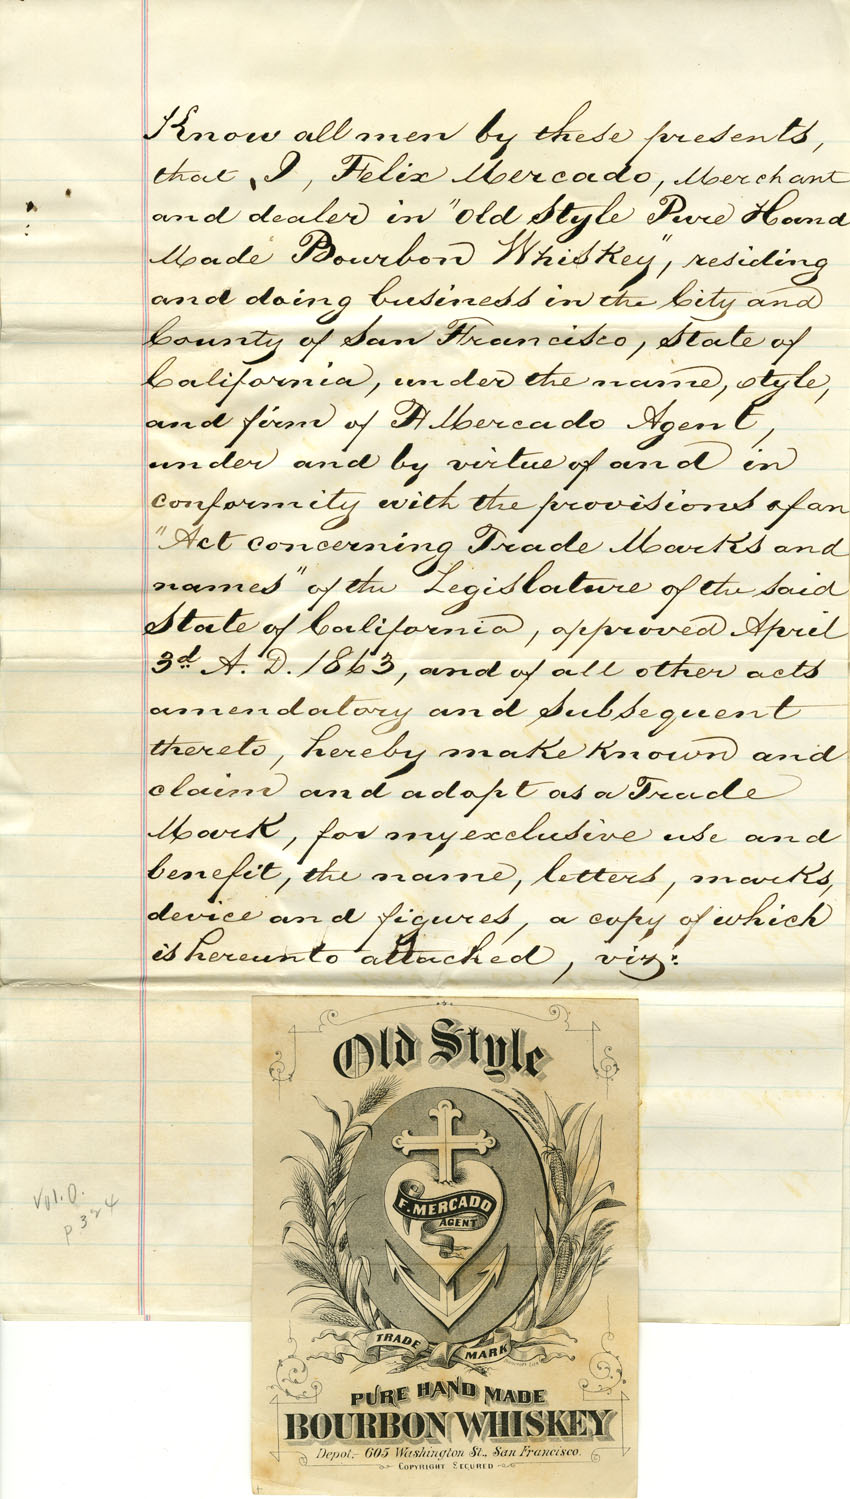 Know all men by these presents,
that, I, Felix Mercado, Merchant
and dealer in "Old Style Pure Hand
Made Bourbon Whiskey", residing
and doing business in the City and
County of San Francisco, State of
California, under the name, style,
and firm of F Mercado Agent,
under and by virtue of and in
conformity with the provisions of an
"Act concerning Trade Marks and
names" of the Legislature of the said
State of California, approved April
3d A. D. 1863, and of all other acts
amendatory and subsequent
thereto, hereby make known and
claim and adopt as a Trade
Mark, for my exclusive use and
benefit, the name, letters, marks,
device and figures, a copy of which
is hereunto attached, viz:
Vol. D.
p 324
Old Style
F. MERCADO
AGENT
TRADE MARK
PURE HAND MADE
BOURBON WHISKEY
Depot,- 605 Washington St., San Francisco.
COPYRIGHT SECURED